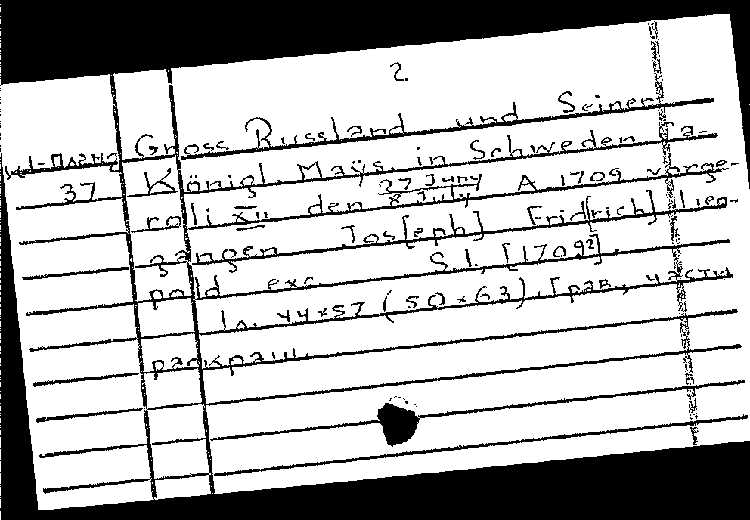 2
Gross Russland und Seiner
Königl. Maÿs. in Schweden Ca-
37
roli XII den 27 Juny / 8 July A 1709 vorge-
gangen Jos[eph] Frid[rich] Leo-
pold exc S.l., [1709?].
1 л. 44×57 (50×63). Грав., части
раскраш.